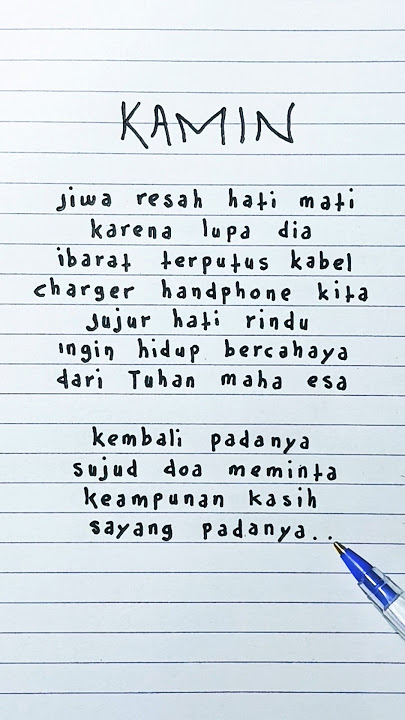 KAMIN
jiwa resah hati mati
karena lupa dia
ibarat terputus kabel
charger handphone kita
jujur hati rindu
ingin hidup bercahaya
dari Tuhan maha esa
kembali padanya
sujud doa meminta
keampunan kasih
sayang padanya..